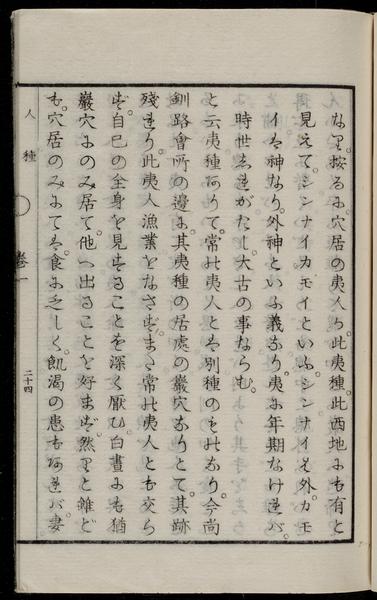 なり。按るに。穴居の夷人ハ。此夷種。此西地にも有と
見えて。シンナイカモイといふ。シンナイは外。カモ
イは神なり。外神といふ義なり。夷に年期なければ。
時世しれがたし。大古の事ならむ。
と云夷種ありて。常の夷人とは別種のものなり。今尚
釧路會所の邊に。其夷種の居處の巖穴なりとて。其跡
殘れり。此夷人漁業をなさず。また常の夷人とも交ら
ず。自己の全身を見することを深く厭ひ。白晝にも猶
巖穴にのみ居て。他へ出ることを好まず。然りと雖ど
も。穴居のみにては。食に乏しく。飢渴の患もあれば。妻
人種
卷一
二十四